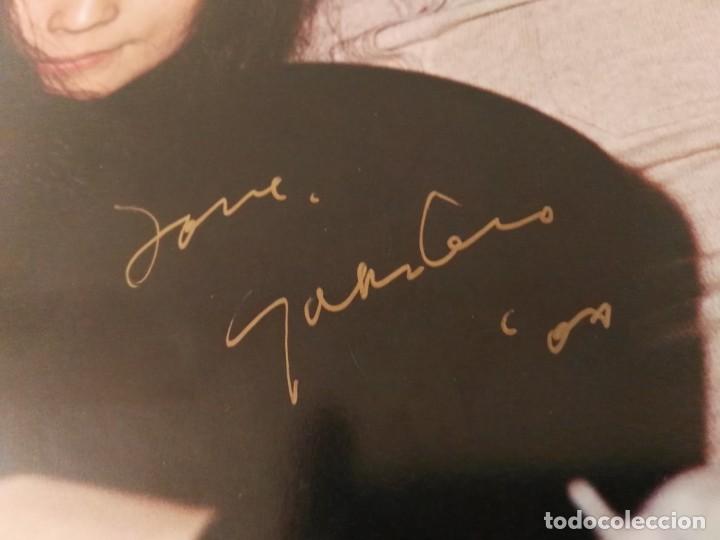 love.
yoko Ono
todocoleccion